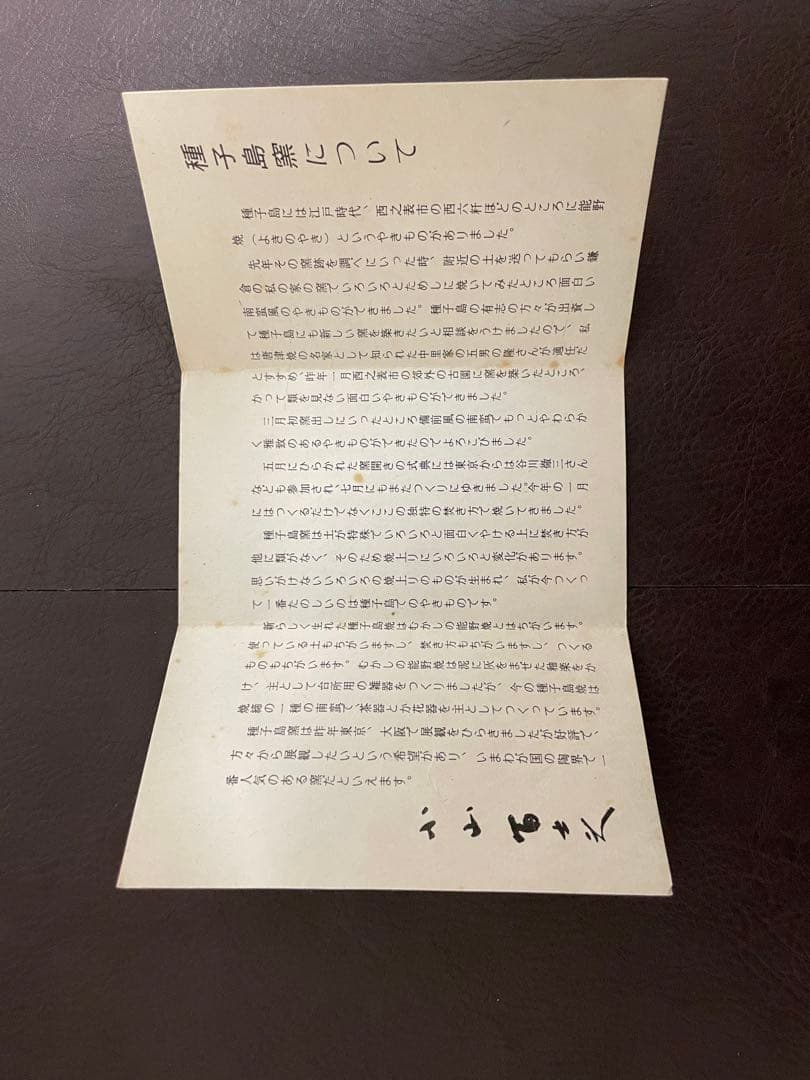 種子島窯について
種子島には江戸時代、西之表市の西六粁ほどのところに能野
焼（よきのやき）というやきものがありました。
先年その窯跡を調べにいった時、附近の土を送ってもらい鎌
倉の私の家の窯でいろいろとためしに焼いてみたところ面白い
南蛮風のやきものができました。種子島の有志の方々が出資し
て種子島にも新しい窯を築きたいと相談をうけましたので、私
は唐津焼の名家として知られた中里家の五男の隆さんが適任だ
とすすめ、昨年一月西之表市の郊外の古園に窯を築いたところ、
かつて類を見ない面白いやきものができました。
三月初窯出しにいったところ備前風の南蛮でもっとやわらか
く雅致のあるやきものができたのでよろこびました。
五月にひらかれた窯開きの式典には東京からは谷川徹三さん
なども参加され、七月にもまたつくりにゆきました。今年の一月
にはつくるだけでなくここの独特の焚き方で焼いてきました。
種子島窯は土が特殊でいろいろと面白くやける上に焚き方が
他に類がなく、そのため焼上りにいろいろと変化があります。
思いがけないいろいろの焼上りのものが生まれ、私が今つくっ
て一番たのしいのは種子島でのやきものです。
新らしく生れた種子島焼はむかしの能野焼とはちがいます。
使っている土もちがいますし、焚き方もちがいますし、つくる
ものもちがいます。むかしの能野焼は泥に灰をませた種薬をか
け、主として台所用の雑器をつくりましたが、今の種子島焼は
焼締の一種の南蛮で、茶器とか花器を主としてつくっています。
種子島窯は昨年東京、大阪で展観をひらきましたが好評で、
方々から展観したいという希望があり、いまわが国の陶界で一
番人気のある窯だといえます。
小山冨士夫